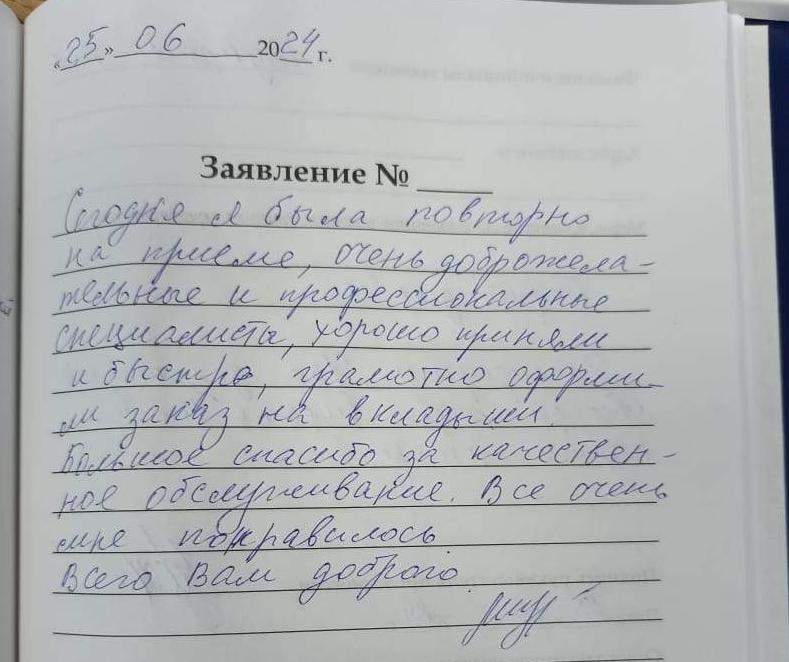 «25» 06 2024 г.
Заявление № ____
Сегодня я была повторно
на приеме, очень доброжела-
тельные и профессиональные
специалисты, хорошо приняли
и быстро, грамотно оформи-
ли заказ на вкладыши.
Большое спасибо за качествен-
ное обслуживание. Все очень
мне понравилось
Всего Вам доброго.